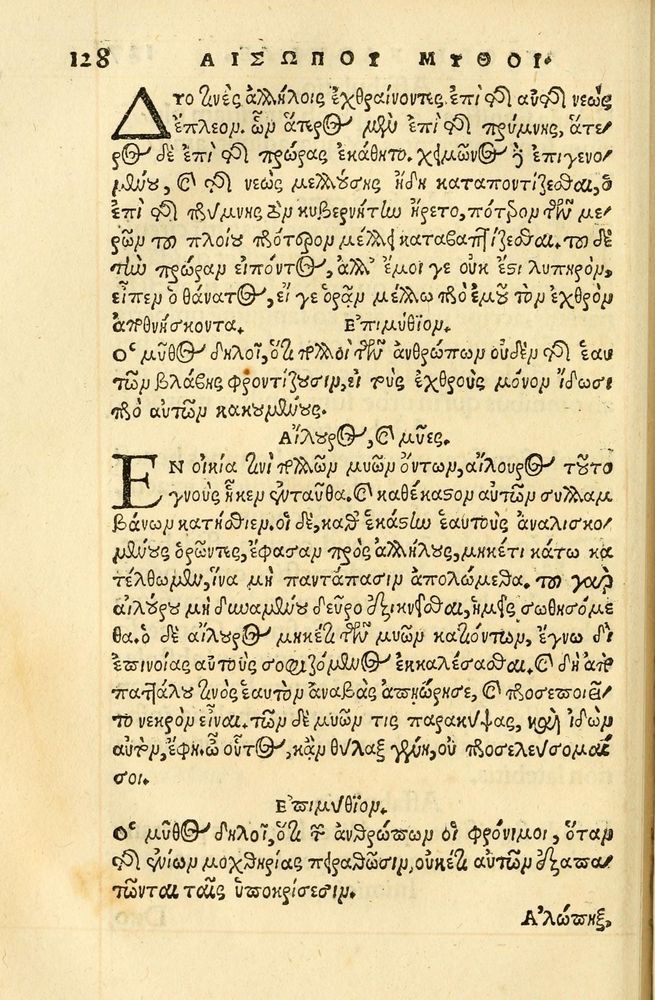 128 ΑΙΣΩΠΟΥ ΜΥΘΟΙ.
ΔΥΟ τινὲς ἀλλήλοις ἐχθραίνοντες ἐπὶ τῆς αὐτῆς νεὼς
ἔπλεον. ὧν ἅτερος μὲν ἐπὶ τῆς πρύμνης, ἅτε
ρος δὲ ἐπὶ τῆς πρώρας ἐκάθητο. χειμῶνος δὲ ἐπιγενο
μένου, καὶ τῆς νεὼς μελλούσης ἤδη καταποντίζεσθαι, ὁ
ἐπὶ τῆς πρύμνης τὸν κυβερνήτην ἤρετο, πότερον τῶν με
ρῶν τοῦ πλοίου πρότερον μέλλει καταβαπτίζεσθαι. τοῦ δὲ
τὴν πρώραν εἰπόντος, ἀλλ' ἐμοί γε οὐκ ἔστι λυπηρὸν,
εἶπεν ὁ θάνατος, εἴ γε ὁρᾷν μέλλω πρὸ ἐμοῦ τὸν ἐχθρὸν
ἀποθνήσκοντα. Ἐπιμύθϊον.
Ὁ μῦθος δηλοῖ, ὅτι πολλοὶ τῶν ἀνθρώπων οὐδὲν τῆς ἑαυ
τῶν βλάβης φροντίζουσιν, εἰ τοὺς ἐχθροὺς μόνον ἴδωσι
πρὸ αὐτῶν κακουμένους.
Αἴλουρος, καὶ μῦες.
ΕΝ οἰκία τινὶ πολλῶν μυῶν ὄντων, αἴλουρος τοῦτο
γνοὺς ἧκεν ἐνταῦθα. καὶ καθέκαστον αὐτῶν συλλαμ
βάνων κατήσθιεν. οἱ δὲ, καθ' ἑκάστην ἑαυτοὺς ἀναλισκο
μένους ὁρῶντες, ἔφασαν πρὸς ἀλλήλους, μηκέτι κάτω κα
τέλθωμεν, ἵνα μὴ παντάπασιν ἀπολώμεθα. τοῦ γὰρ
αἰλούρου μὴ δυναμένου δεῦρο ἐξικνεῖσθαι, ἡμεῖς σωθησόμε
θα. ὁ δὲ αἴλουρος μηκέτι τῶν μυῶν κατιόντων, ἔγνω δι
ἐπινοίας αὐτοὺς σοφιζόμενος ἐκκαλέσασθαι. καὶ δὴ ἀπὸ
παττάλου τινὸς ἑαυτὸν ἀναβὰς ἀπῃώρησε, καὶ προσεποιεῖ
το νεκρὸν εἶναι. τῶν δὲ μυῶν τις παρακύψας, καὶ ἰδὼν
αὐτὸν, ἔφη. ὦ οὗτος, κἂν θύλαξ γένῃ, οὐ προσελεύσομαί
σοι.
Ἐπιμύθϊον.
Ὁ μῦθος δηλοῖ, ὅτι τῶν ἀνθρώπων οἱ φρόνιμοι, ὅταν
τῆς ἐνίων μοχθηρίας πειραθῶσιν, οὐκέτι αὐτῶν ἐξαπα
τῶνται ταῖς ὑποκρίσεσιν.
Ἀλώπηξ,